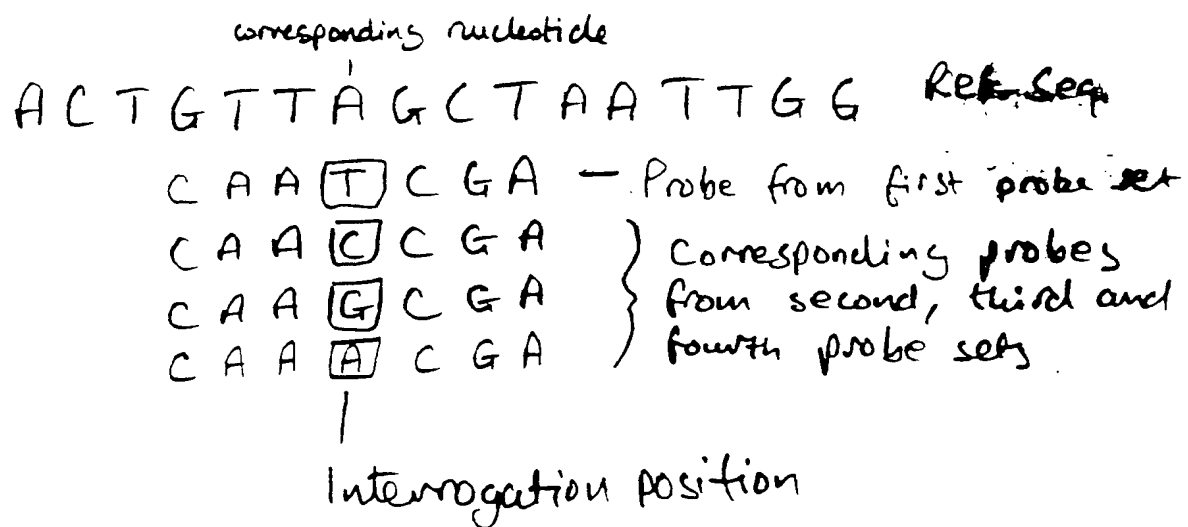 corresponding nucleotide
A C T G T T A G C T A A T T G G Ref. Seq.
C A A T C G A — Probe from first probe set
C A A C C G A Corresponding probes
C A A G C G A from second, third and
C A A A C G A fourth probe sets
Interrogation position